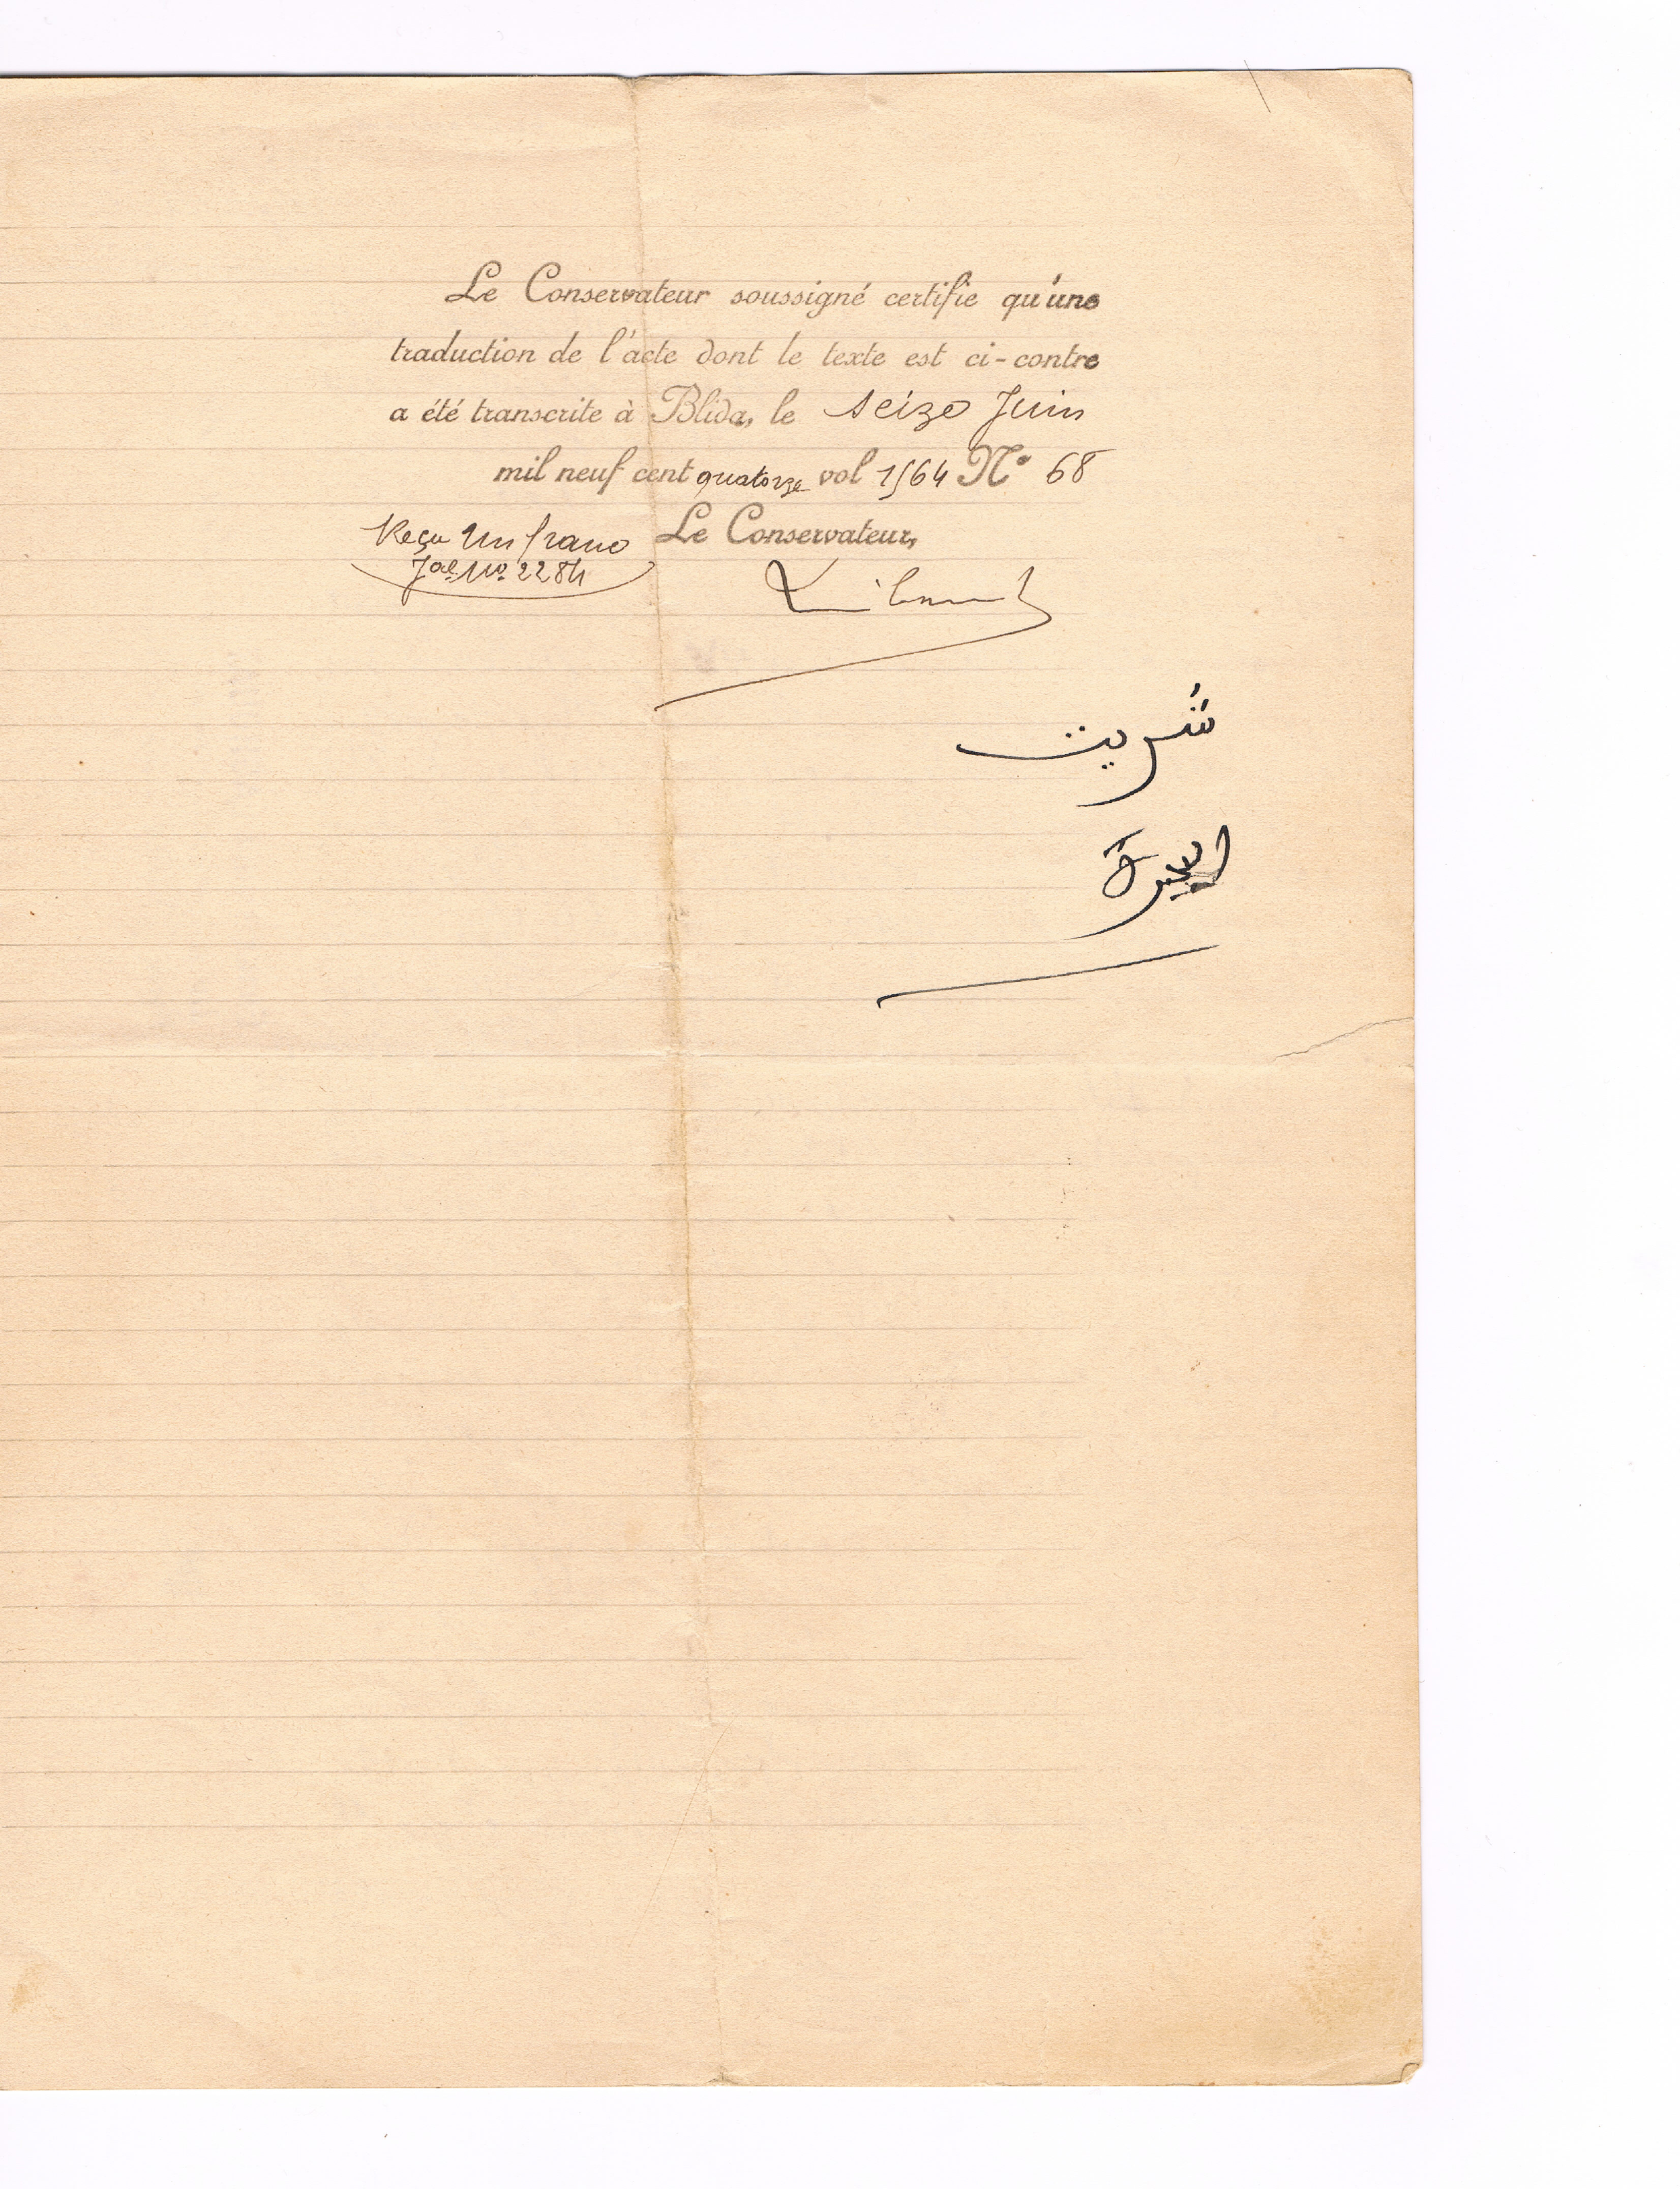 Le Conservateur soussigné certifie qu'une
traduction de l'acte dont le texte est ci-contre
a été transcrite à Blida, le seize Juin
mil neuf cent quatorze vol 1564 N° 68
Reçu Un franc
Le Conservateur,
Jal. No. 2284